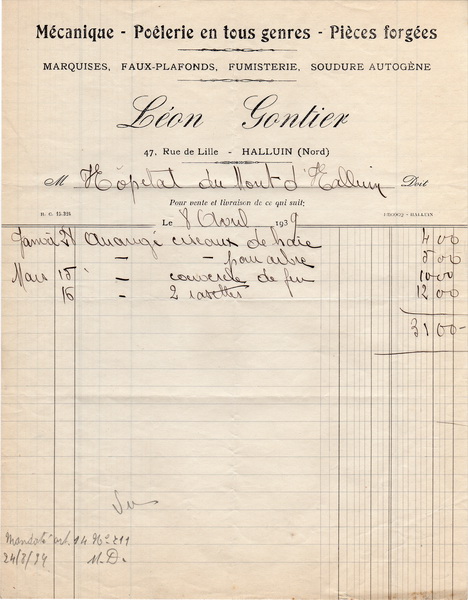 Mécanique - Poêlerie en tous genres - Pièces forgées
MARQUISES, FAUX-PLAFONDS, FUMISTERIE, SOUDURE AUTOGÈNE
Léon Gontier
47, Rue de Lille - HALLUIN (Nord)
M Hôpital du Mont d'Halluin Doit
Pour vente et livraison de ce qui suit:
R. C. 15.325
Le 8 Avril 1939
Janvier 21 Arrangé ciseaux de haie 4 00
- - pour arbre 5 00
Mars 15 - couvercle de feu 10 00
16 - 2 rasettes 12 00
31 00
Vu
Mandaté art 14 N° 211
24/3/39 M.D.